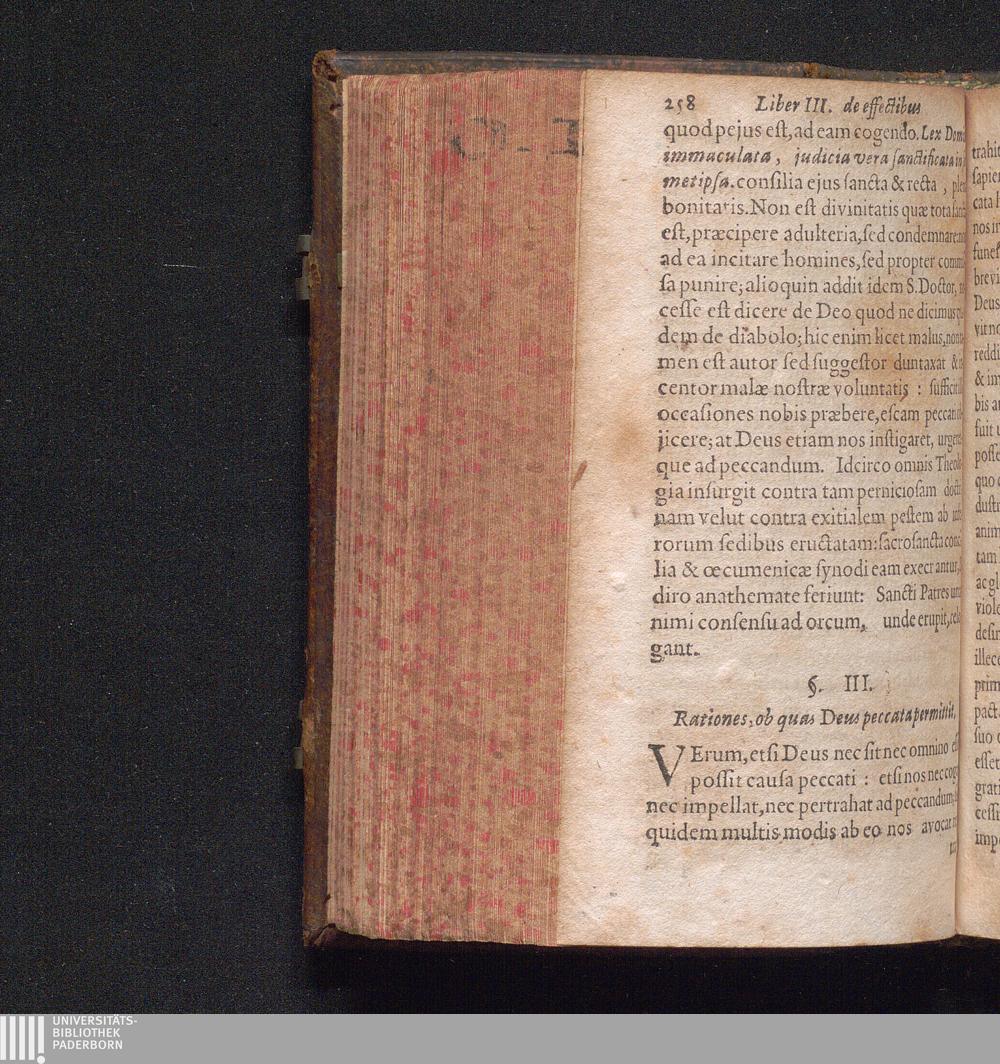 258 Liber III. de effectibus
quod pejus est, ad eam cogendo. Lex Dom
immaculata, judicia vera sanctificata in
metipsa. consilia ejus sancta & recta, ple
bonitatis. Non est divinitatis quæ tota
est, præcipere adulteria, sed condemnare: no
ad ea incitare homines, sed propter comm
sa punire; alioquin addit idem S. Doctor,
cesse est dicere de Deo quod ne dicimus
dem de diabolo; hic enim licet malus, non
men est autor sed suggestor duntaxat &
centor malæ nostræ voluntatis : sufficit
occasiones nobis præbere, escam peccan
jicere; at Deus etiam nos instigaret, urge
que ad peccandum. Idcirco omnis Theol
gia insurgit contra tam perniciosam doct
nam velut contra exitialem pestem ab
rorum sedibus eructatam: sacrosancta conc
lia & œcumenicæ synodi eam execrantur,
diro anathemate feriunt: Sancti Patres un
nimi consensu ad orcum, unde erupit, rele
gant.
§. III.
Rationes, ob quas Deus peccata permittit.
VErum, etsi Deus nec sit nec omnino
possit causa peccati : etsi nos nec cog
nec impellat, nec pertrahat ad peccandum,
quidem multis modis ab eo nos avocat
trahit
sapien
cata
nos
funes
brevi
Deus
reddi
& im
bis
fuit
posse
quo
dustr
anim
tam
ac
viole
desin
illece
prim
pact
suo
esset
grati
cessi
imp
UNIVERSITÄTS-
BIBLIOTHEK
PADERBORN